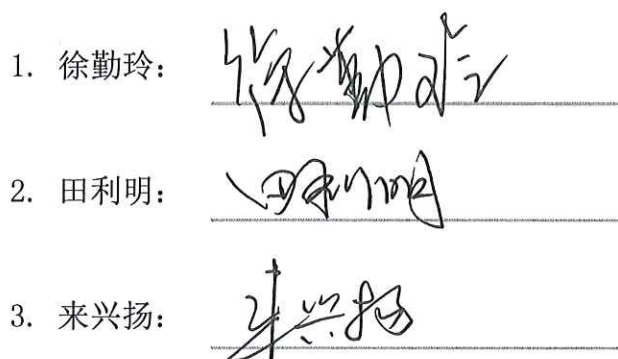 1. 徐勤玲: 徐勤玲
2. 田利明: 田利明
3. 来兴扬: 来兴扬